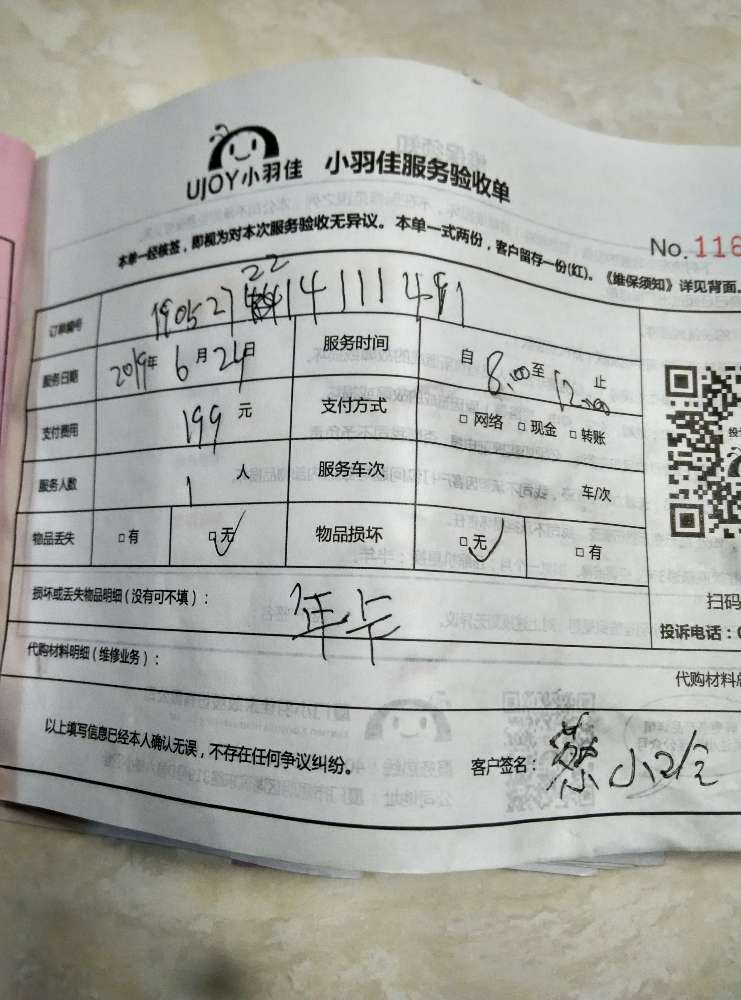 UJOY小羽佳 小羽佳服务验收单
本单一经核签，即视为对本次服务验收无异议。本单一式两份，客户留存一份(红)。《维保须知》详见背面。
No.116
订单编号 190527 22 14111491
服务日期 2019年 6月24日 服务时间 自 8:00至 12:00 止
支付费用 199 元 支付方式 □网络 □现金 □转账
服务人数 1 人 服务车次 车/次
物品丢失 □有 □无 物品损坏 □无 □有
损坏或丢失物品明细(没有可不填)： 年卡
扫码
投诉电话：
代购材料明细(维修业务)：
代购材料总
以上填写信息已经本人确认无误，不存在任何争议纠纷。
客户签名： 蔡小